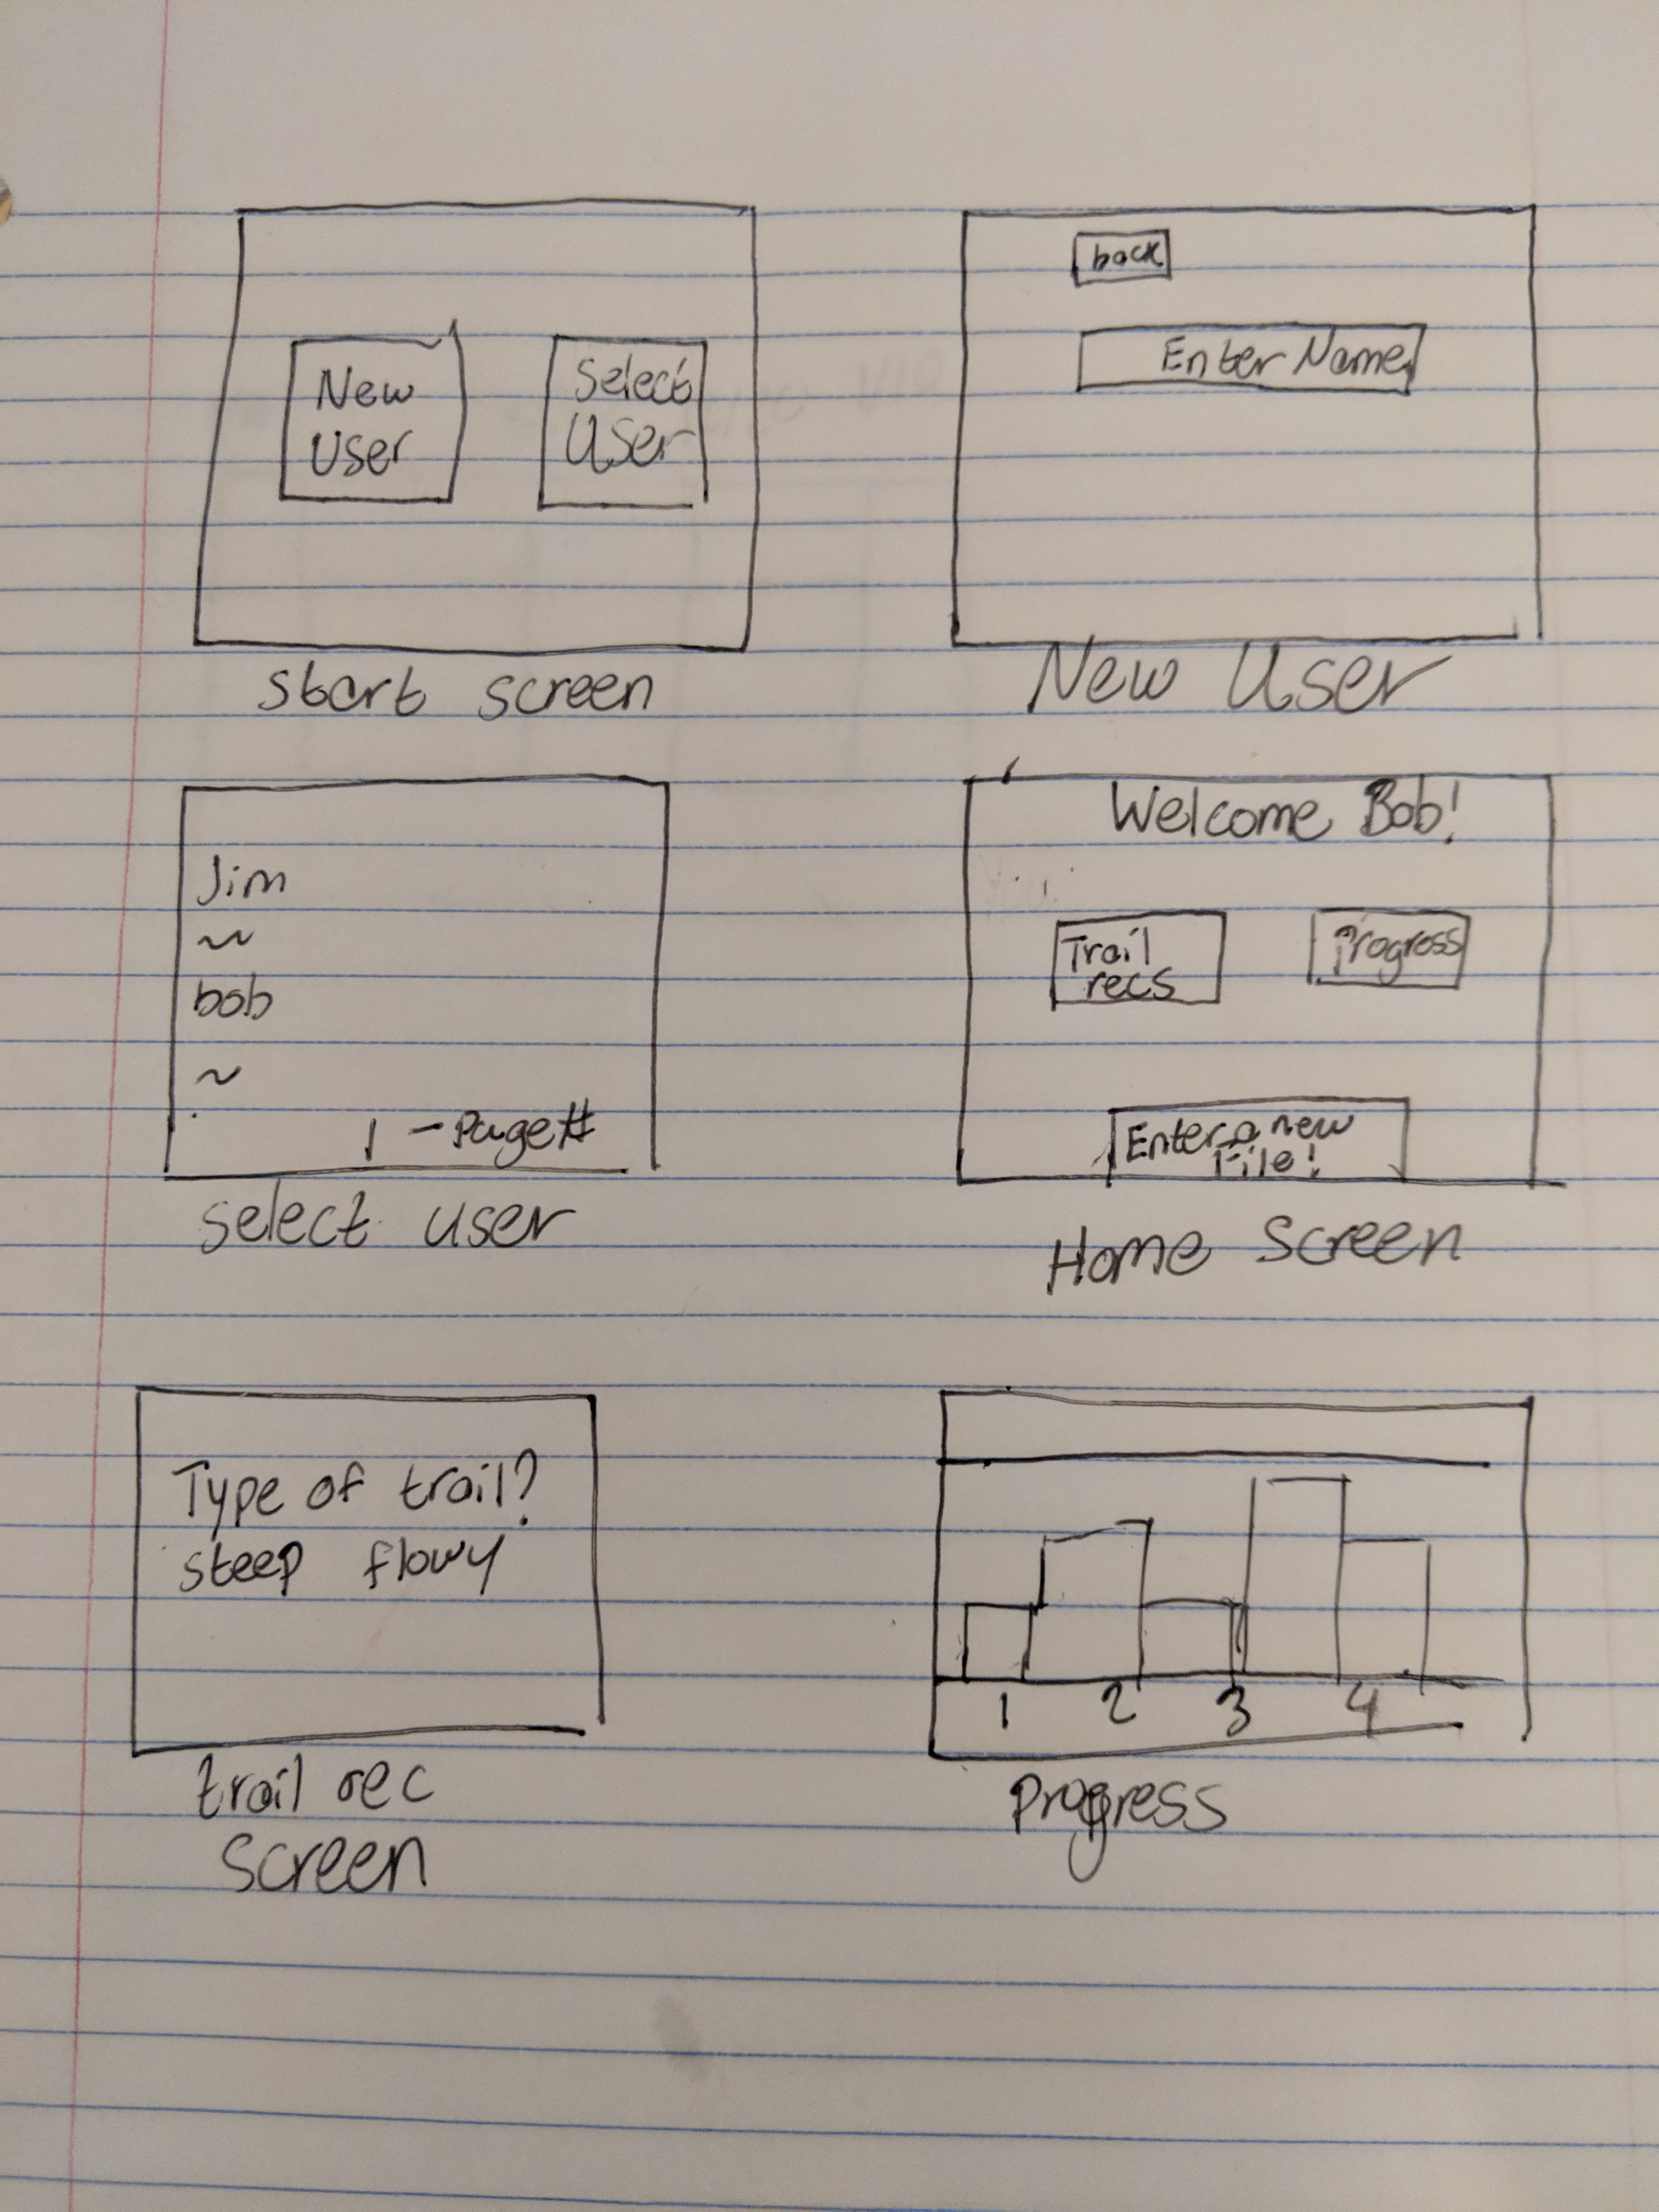 New
User
Select
User
start screen
back
Enter Name
New User
Jim
~
bob
~
1 - Page#
select user
Welcome Bob!
Trail
recs
Progress
Enter a new
File!
Home Screen
Type of trail?
steep flowy
trail rec
screen
1 2 3 4
Progress